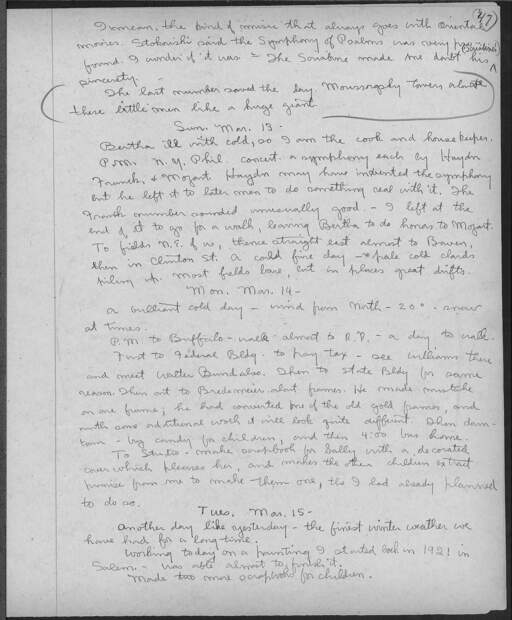 47
I mean, the kind of music that always goes with oriental
movies. Stokowski said the Symphony of Psalms was very pro-
found. I wonder if it was - The Sonatine made me doubt his (Stravinsky's)
sincerity. -
The last number saved the day. Moussorgsky towers above
these little men like a huge giant
Sun. Mar. 13 -
Bertha ill with cold, so I am the cook and housekeeper.
P.M. N.Y. Phil. concert a symphony each by Haydn
Franck, & Mozart. Haydn may have invented the symphony
but he left it to later men to do something real with it. The
Franck number sounded unusually good. - I left at the
end of it to go for a walk, leaving Bertha to do honors to Mozart.
To fields N.E. of us, thence straight east almost to Bowen,
then in Clinton St. A cold fine day - pale cold clouds
piling up. Most fields bare, but in places great drifts.
Mon. Mar. 14 -
A brilliant cold day - wind from North - 20° - snow
at times.
P.M. to Buffalo - walk almost to R.D. - a day to walk.
First to Federal Bldg. to pay tax - see Williams there
and meet Walter Bund also. Then to State Bldg for same
reason. Then out to Bredemeier about frames. He made mistake
on one frame; he had converted one of the old gold frames, and
with some additional work it will look quite different. Then down-
town - buy candy for children, and then 4:00 bus home.
To Studio - make scrapbook for Sally with a decorated
cover which pleases her, and makes the other children extract
promise from me to make them one, tho I had already planned
to do so.
Tues. Mar. 15 -
Another day like yesterday - the finest winter weather we
have had for a long time.
Working today on a painting I started back in 1921 in
Salem. - was able almost to finish it.
Made two more scrapbooks for children.